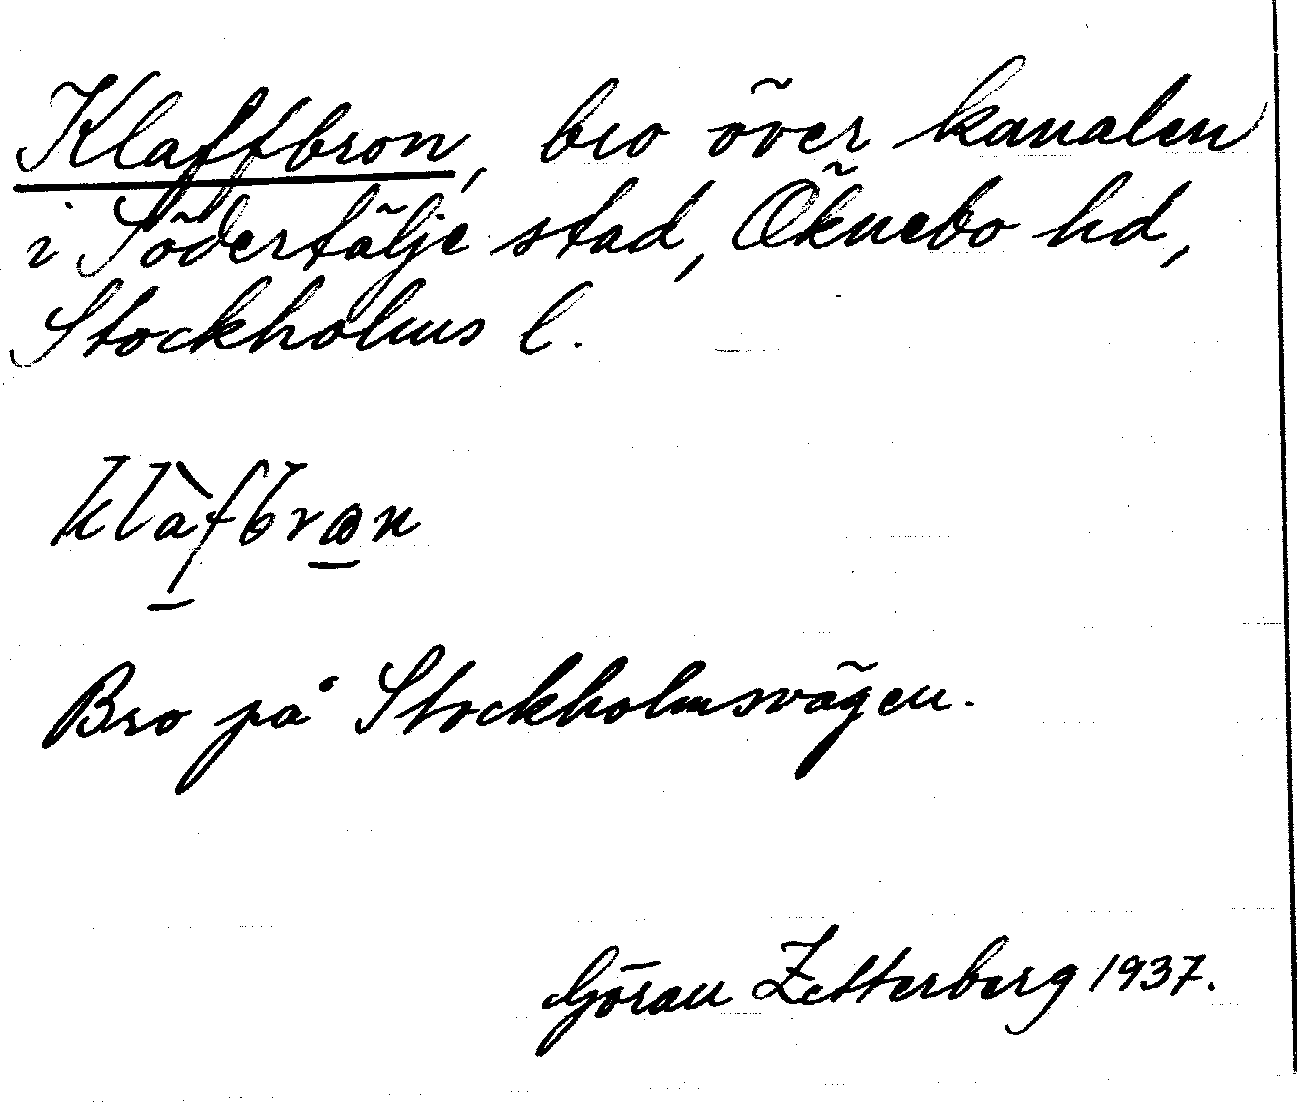 Klaffbron, bro över kanalen
i Södertälje stad, Öknebo hd,
Stockholms l.
klàfbrωn
Bro på Stockholmsvägen.
Göran Zetterberg 1937.